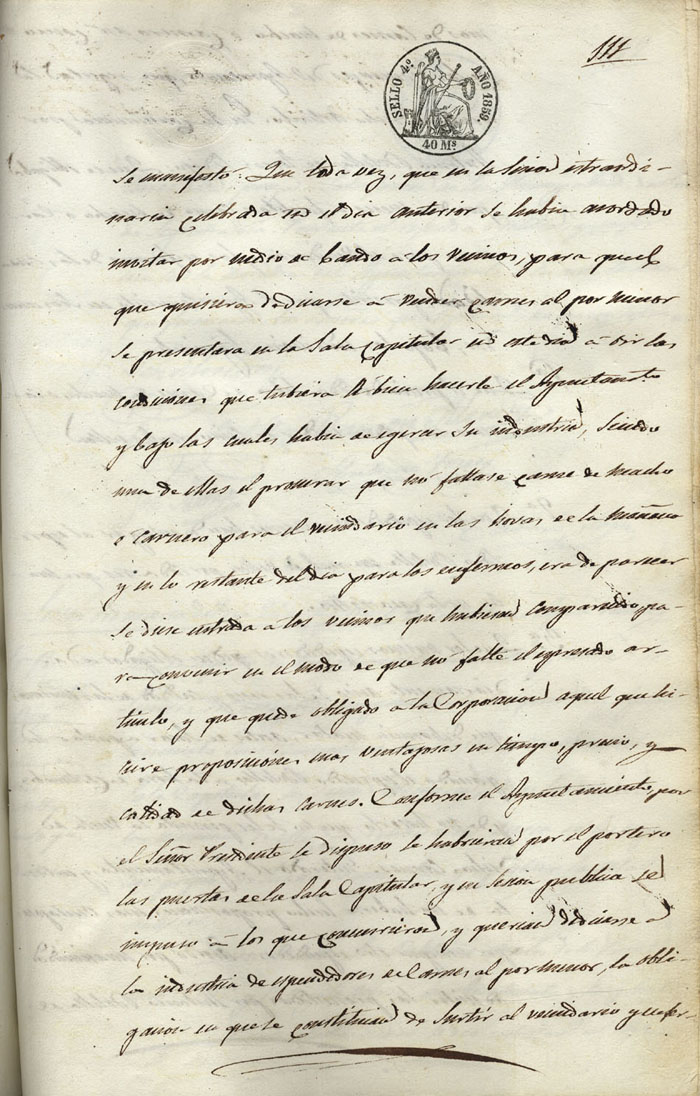 111
SELLO 4º AÑO 1859.
40 Ms.
Se manifestó: Que toda vez, que en la Sesion estraordi-
naria celebrada en el dia anterior se habia acordado
invitar por medio de bando á los vecinos, para que el
que quisiera dedicarse á vender carnes al por menor
se presentara en la Sala Capitular en este dia á oir las
condiciones que tubiera á bien hacerle el Ayuntamto
y bajo las cuales habia de egercer su industria, siendo
una de ellas el procurar que no faltase carne de macho
o carnero para el vecindario en las horas de la mañana
y en lo restante del dia para los enfermos, era de parecer
se diese entrada á los vecinos que hubiesen comparecido pa-
ra convenir en el modo de que no falte el espresado ar-
ticulo, y que quede obligado á la Corporacion aquel que hi-
ciere proposiciones mas ventajosas en tiempo, precio, y
calidad de dichas carnes. Conforme el Ayuntamiento, por
el Señor Presidente se dispuso se habrieran por el portero
las puertas de la Sala Capitular, y en sesion publica se
impuso á los que concurrieron, y querian dedicarse á
la industria de espendedores de Carnes al por menor, la obli-
gacion en que se constituian de surtir al vecindario y enfer-